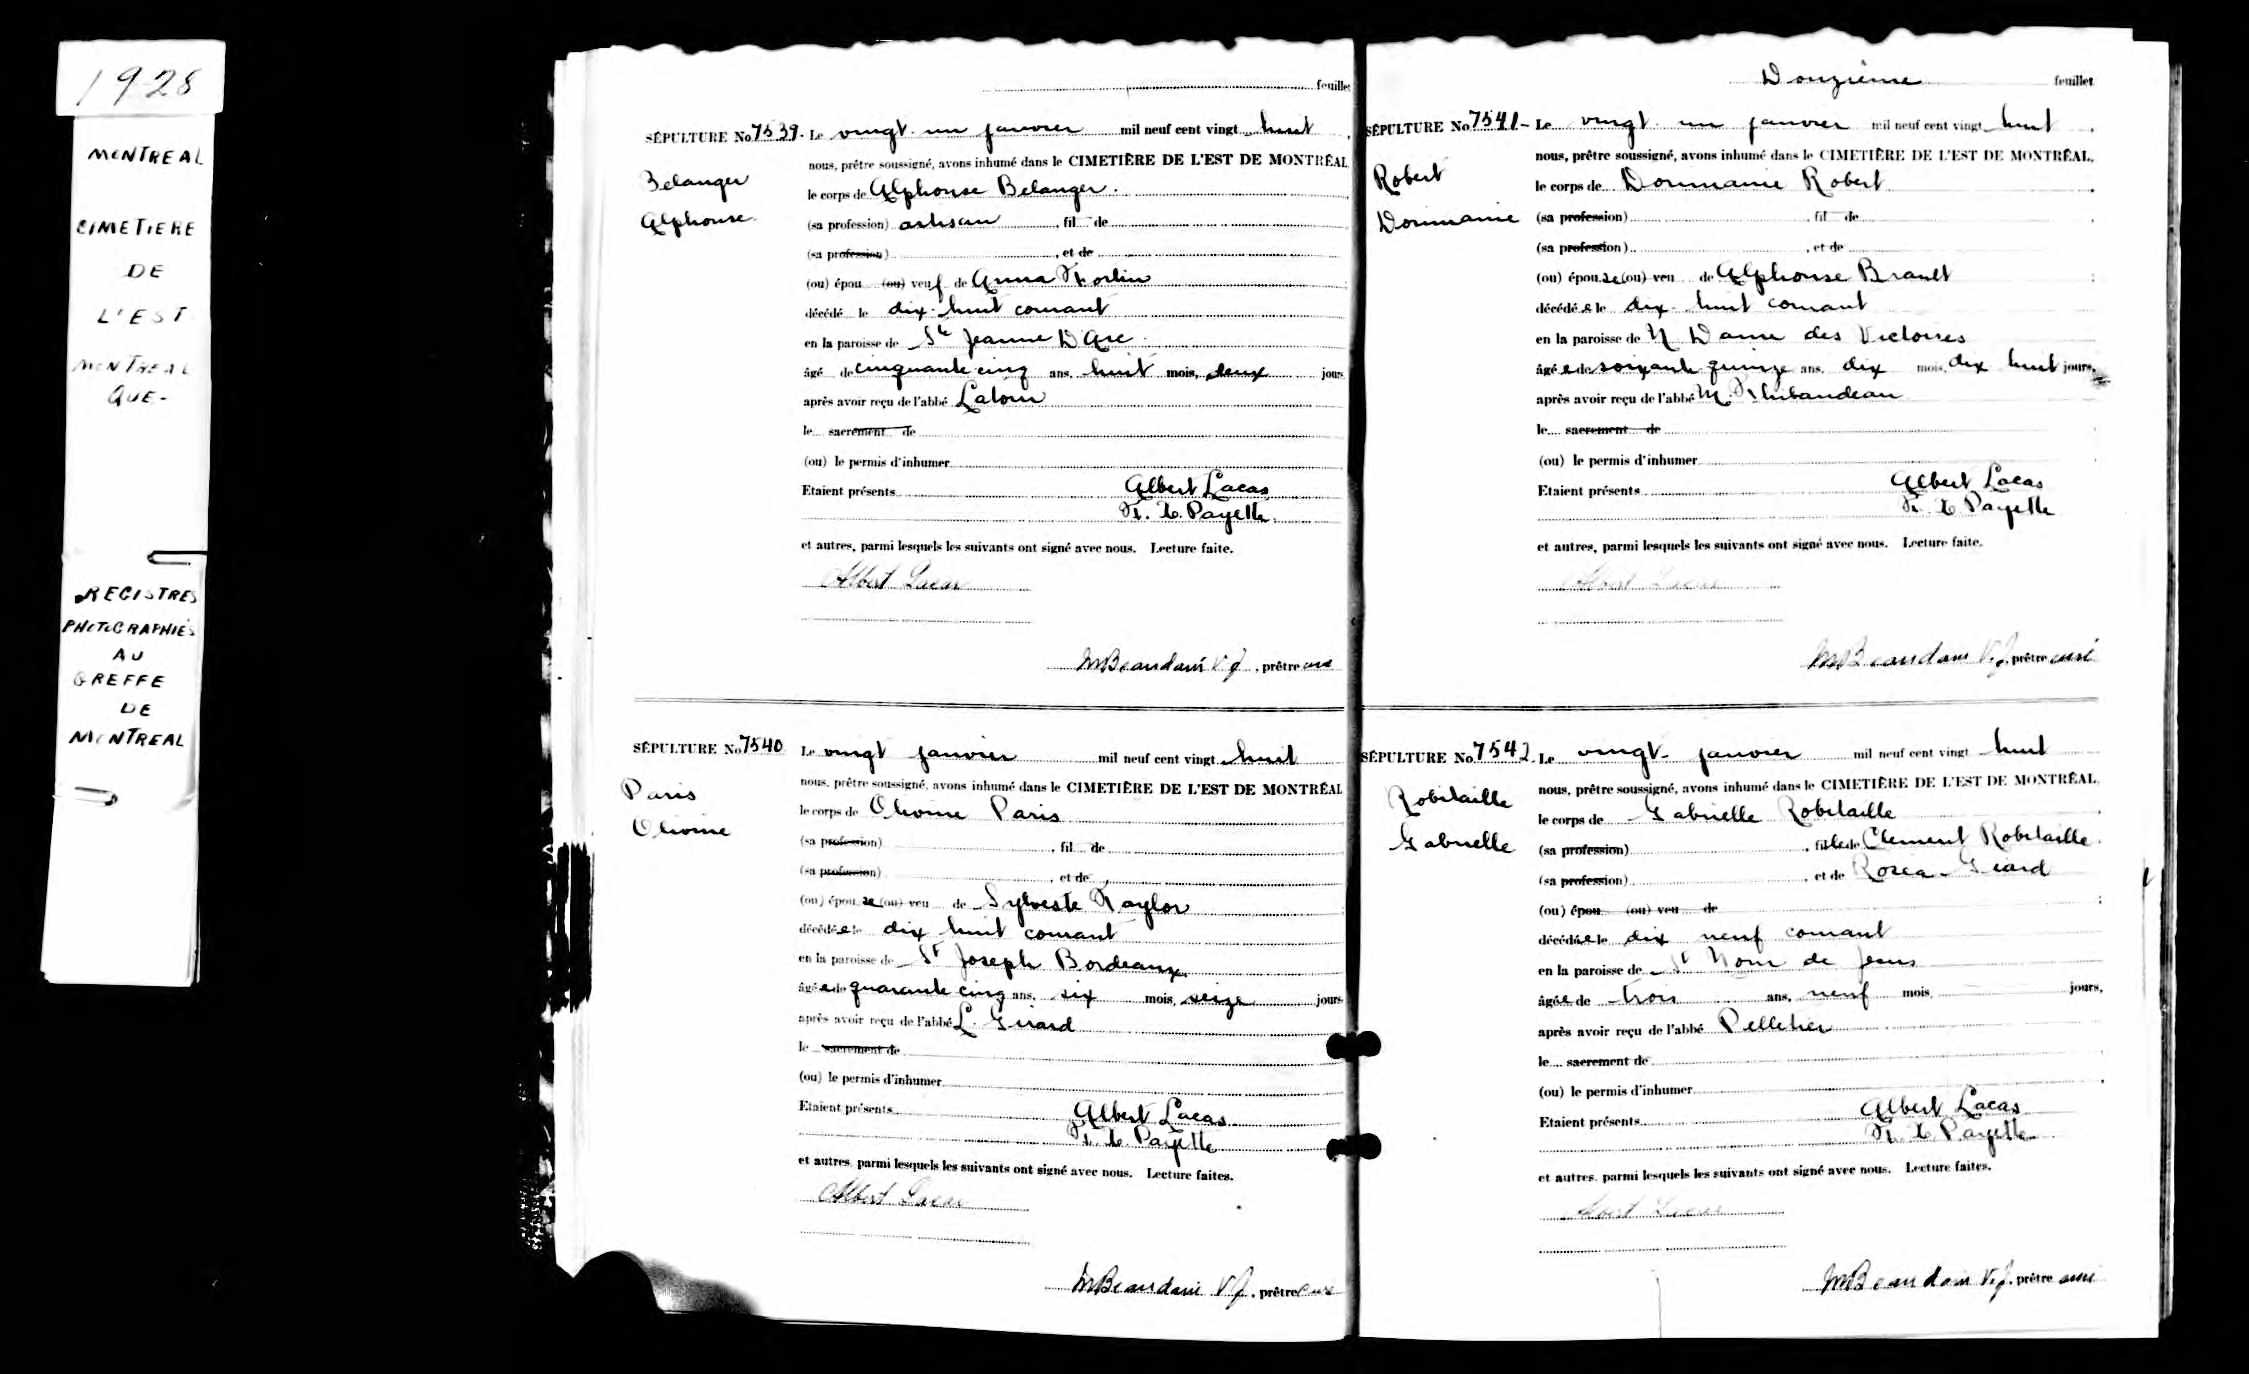 1928
MONTREAL
CIMETIERE
DE
L'EST
MONTREAL
QUE-
REGISTRES
PHOTOGRAPHIÉS
AU
GREFFE
DE
MONTREAL
feuillet
SÉPULTURE No 7539. Le vingt un janvier mil neuf cent vingt huit
nous, prêtre soussigné, avons inhumé dans le CIMETIÈRE DE L'EST DE MONTRÉAL
Belanger
Alphonse
le corps de Alphonse Belanger.
(sa profession) artisan, fil de
(sa profession), et de
(ou) épou (ou) veuf de Anna Fortin
décédé le dix huit courant
en la paroisse de Ste Jeanne D'Arc
âgé de cinquante cinq ans, huit mois, deux jours
après avoir reçu de l'abbé Latour
le sacrement de
(ou) le permis d'inhumer
Etaient présents Albert Lacas
F. X. Payette
et autres, parmi lesquels les suivants ont signé avec nous. Lecture faite.
Albert Lacas
Beaudoin V.f., prêtre curé
SÉPULTURE No 7540 Le vingt janvier mil neuf cent vingt huit
nous, prêtre soussigné, avons inhumé dans le CIMETIÈRE DE L'EST DE MONTRÉAL
Paris
le corps de Paris
(sa profession), fil de
(sa profession), et de
(ou) épouse (ou) veu de Sylveste Taylor
décédée le dix huit courant
en la paroisse de St Joseph Bordeaux
âgée de quarante cinq ans, six mois, seize jours
après avoir reçu de l'abbé L. Girard
le sacrement de
(ou) le permis d'inhumer
Etaient présents Albert Lacas
F. X. Payette
et autres, parmi lesquels les suivants ont signé avec nous. Lecture faites.
Albert Lacas
Beaudoin V.f., prêtre curé
Douzième feuillet
SÉPULTURE No 7541- Le vingt un janvier mil neuf cent vingt huit.
nous, prêtre soussigné, avons inhumé dans le CIMETIÈRE DE L'EST DE MONTRÉAL,
Robert
le corps de Robert
(sa profession), fil de
(sa profession), et de
(ou) épouse (ou) veu de Alphonse Brault
décédée le dix huit courant
en la paroisse de N Dame des Victoires
âgée de soixante quinze ans, dix mois, dix huit jours,
après avoir reçu de l'abbé M. Thibaudeau
le sacrement de
(ou) le permis d'inhumer
Etaient présents Albert Lacas
F. X Payette
et autres, parmi lesquels les suivants ont signé avec nous. Lecture faite.
Albert Lacas
Beaudoin V.f., prêtre curé
SÉPULTURE No 7542. Le vingt janvier mil neuf cent vingt huit
nous, prêtre soussigné, avons inhumé dans le CIMETIÈRE DE L'EST DE MONTRÉAL,
Robitaille
Gabrielle
le corps de Gabrielle Robitaille
(sa profession), fille de Clement Robitaille.
(sa profession), et de
(ou) épou (ou) veu de
décédée le dix neuf courant
en la paroisse de St Nom de Jesus
âgée de trois ans, neuf mois, jours,
après avoir reçu de l'abbé Pelletier
le sacrement de
(ou) le permis d'inhumer
Etaient présents Albert Lacas
F. X Payette
et autres, parmi lesquels les suivants ont signé avec nous. Lecture faites.
Albert Lacas
Beaudoin V.f., prêtre curé